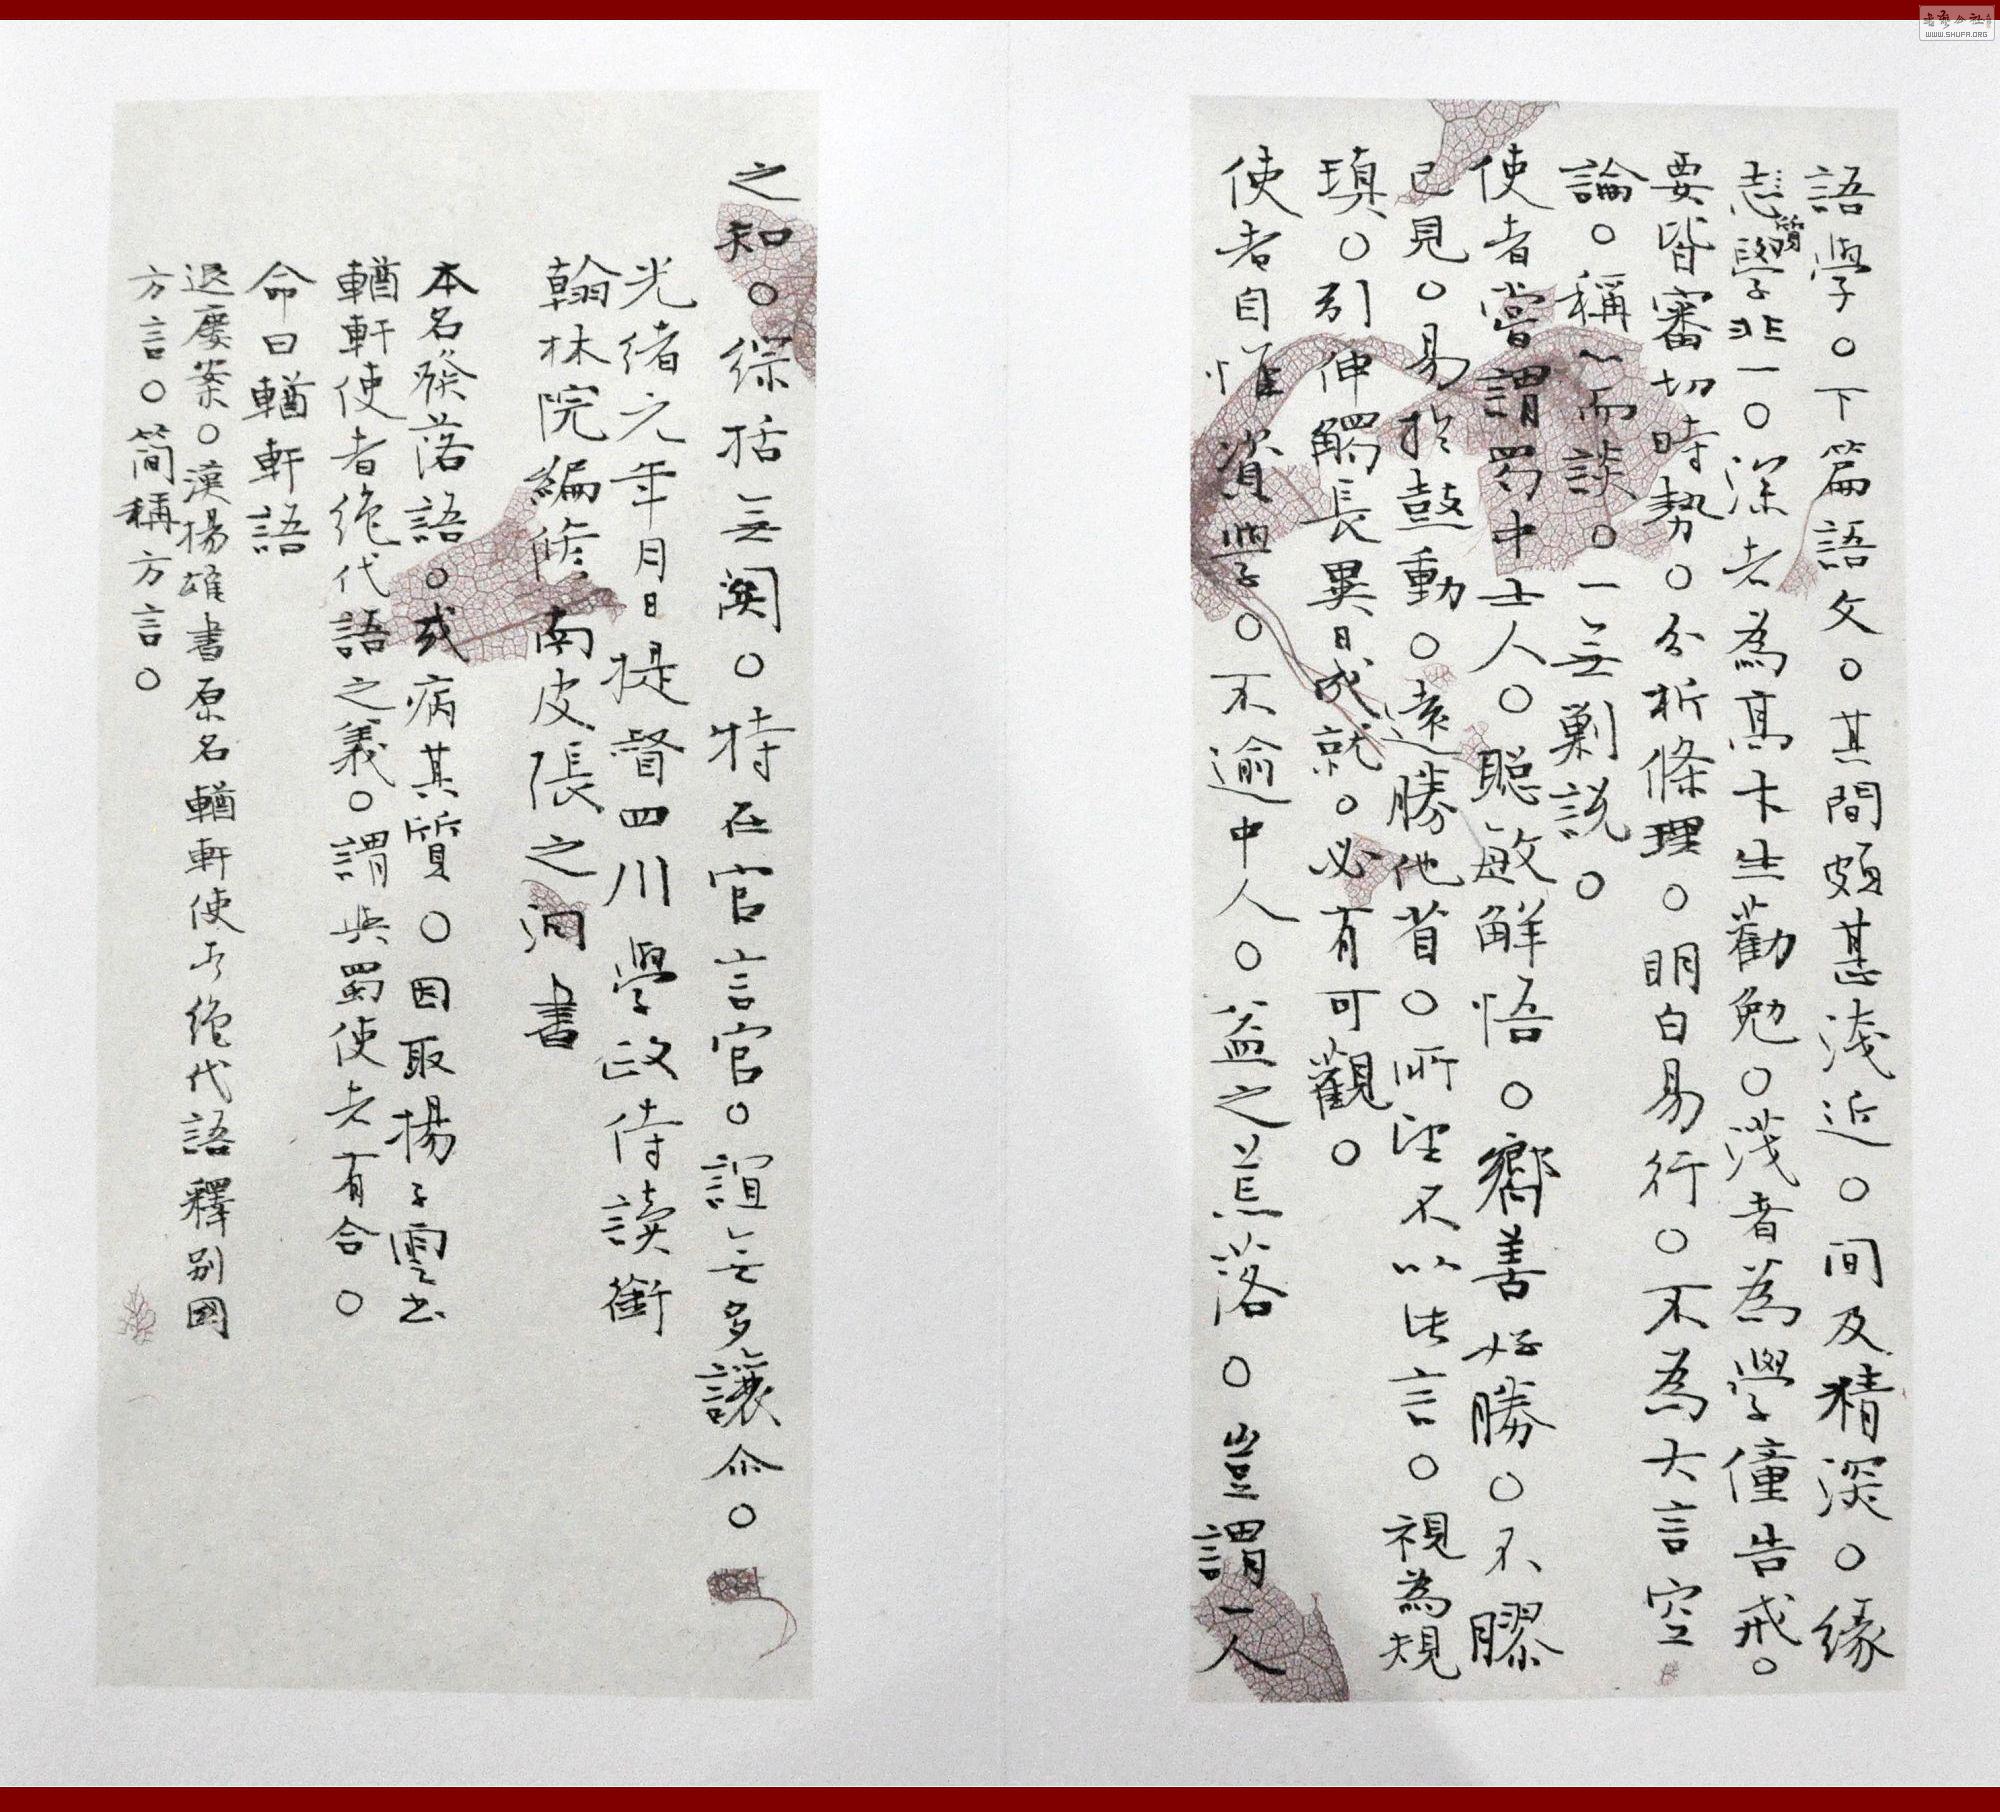 語學。下篇語文。其間頗甚淺近。間及精深。緣
志簡學非一。深者為高材生勸勉。淺者為學僮告戒。
要皆審切時勢。分析條理。明白易行。不為大言空
論。稱心而談。一無剿説。
使者嘗謂蜀中士人。聰敏解悟。嚮善好勝。不膠
己見。易於鼓動。遠勝他省。所望不以此言。視為規
瑱。引伸觸長異日成就。必有可觀。
使者自惟資學。不逾中人。益之荒落。豈謂一人
之知。綜括無闕。特在官言官。誼無多讓尒。
光緒元年月日提督四川學政侍讀銜
翰林院編脩南皮張之洞書
本名發落語。或病其質。因取揚子雲書
輶軒使者絶代語之義。謂與蜀使者有合。
命曰輶軒語
退廔案。漢揚雄書原名輶軒使者絶代語釋别國
方言。简稱方言。
书法公社
WWW.SHUFA.ORG